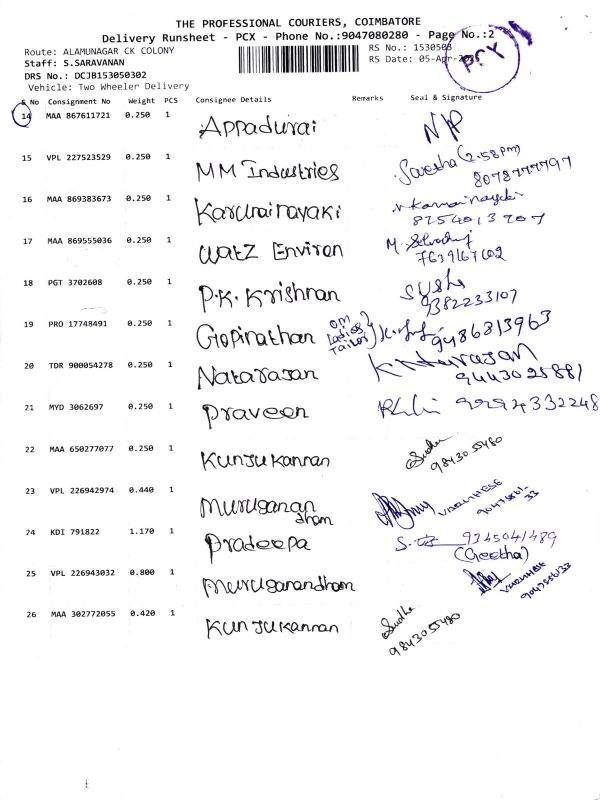 THE PROFESSIONAL COURIERS, COIMBATORE
Delivery Runsheet - PCX - Phone No.:9047080280 - Page No.:2
Route: ALAMUNAGAR CK COLONY
RS No.: 1530503
Staff: S.SARAVANAN
RS Date: 05-Apr-
PCX
DRS No.: DCJB153050302
Vehicle: Two Wheeler Delivery
S No Consignment No Weight PCS Consignee Details Remarks Seal & Signature
14 MAA 867611721 0.250 1 Appadurai N/P
15 VPL 227523529 0.250 1 MM Industries (2.58pm)
8078777797
16 MAA 869383673 0.250 1 Karunainayaki
8754013707
17 MAA 869555036 0.250 1 Watz Environ M.
7639167602
18 PGT 3702608 0.250 1 P.K. Krishnan
9382233107
19 PRO 17748491 0.250 1 Gopinathan OM Ladies Tailor
9486813963
20 TDR 900054278 0.250 1 Natarasan K Natarasan
9443025881
21 MYD 3062697 0.250 1 Praveen 9994332248
22 MAA 650277077 0.250 1 Kunjukannan Sudha
9843055480
23 VPL 226942974 0.440 1 Muruganandham VARGHESE
24 KDI 791822 1.170 1 Pradeepa 9345041489
(Geetha)
25 VPL 226943032 0.800 1 Muruganandham VARGHESE
26 MAA 302772055 0.420 1 Kunjukannan Sudha
9843055480